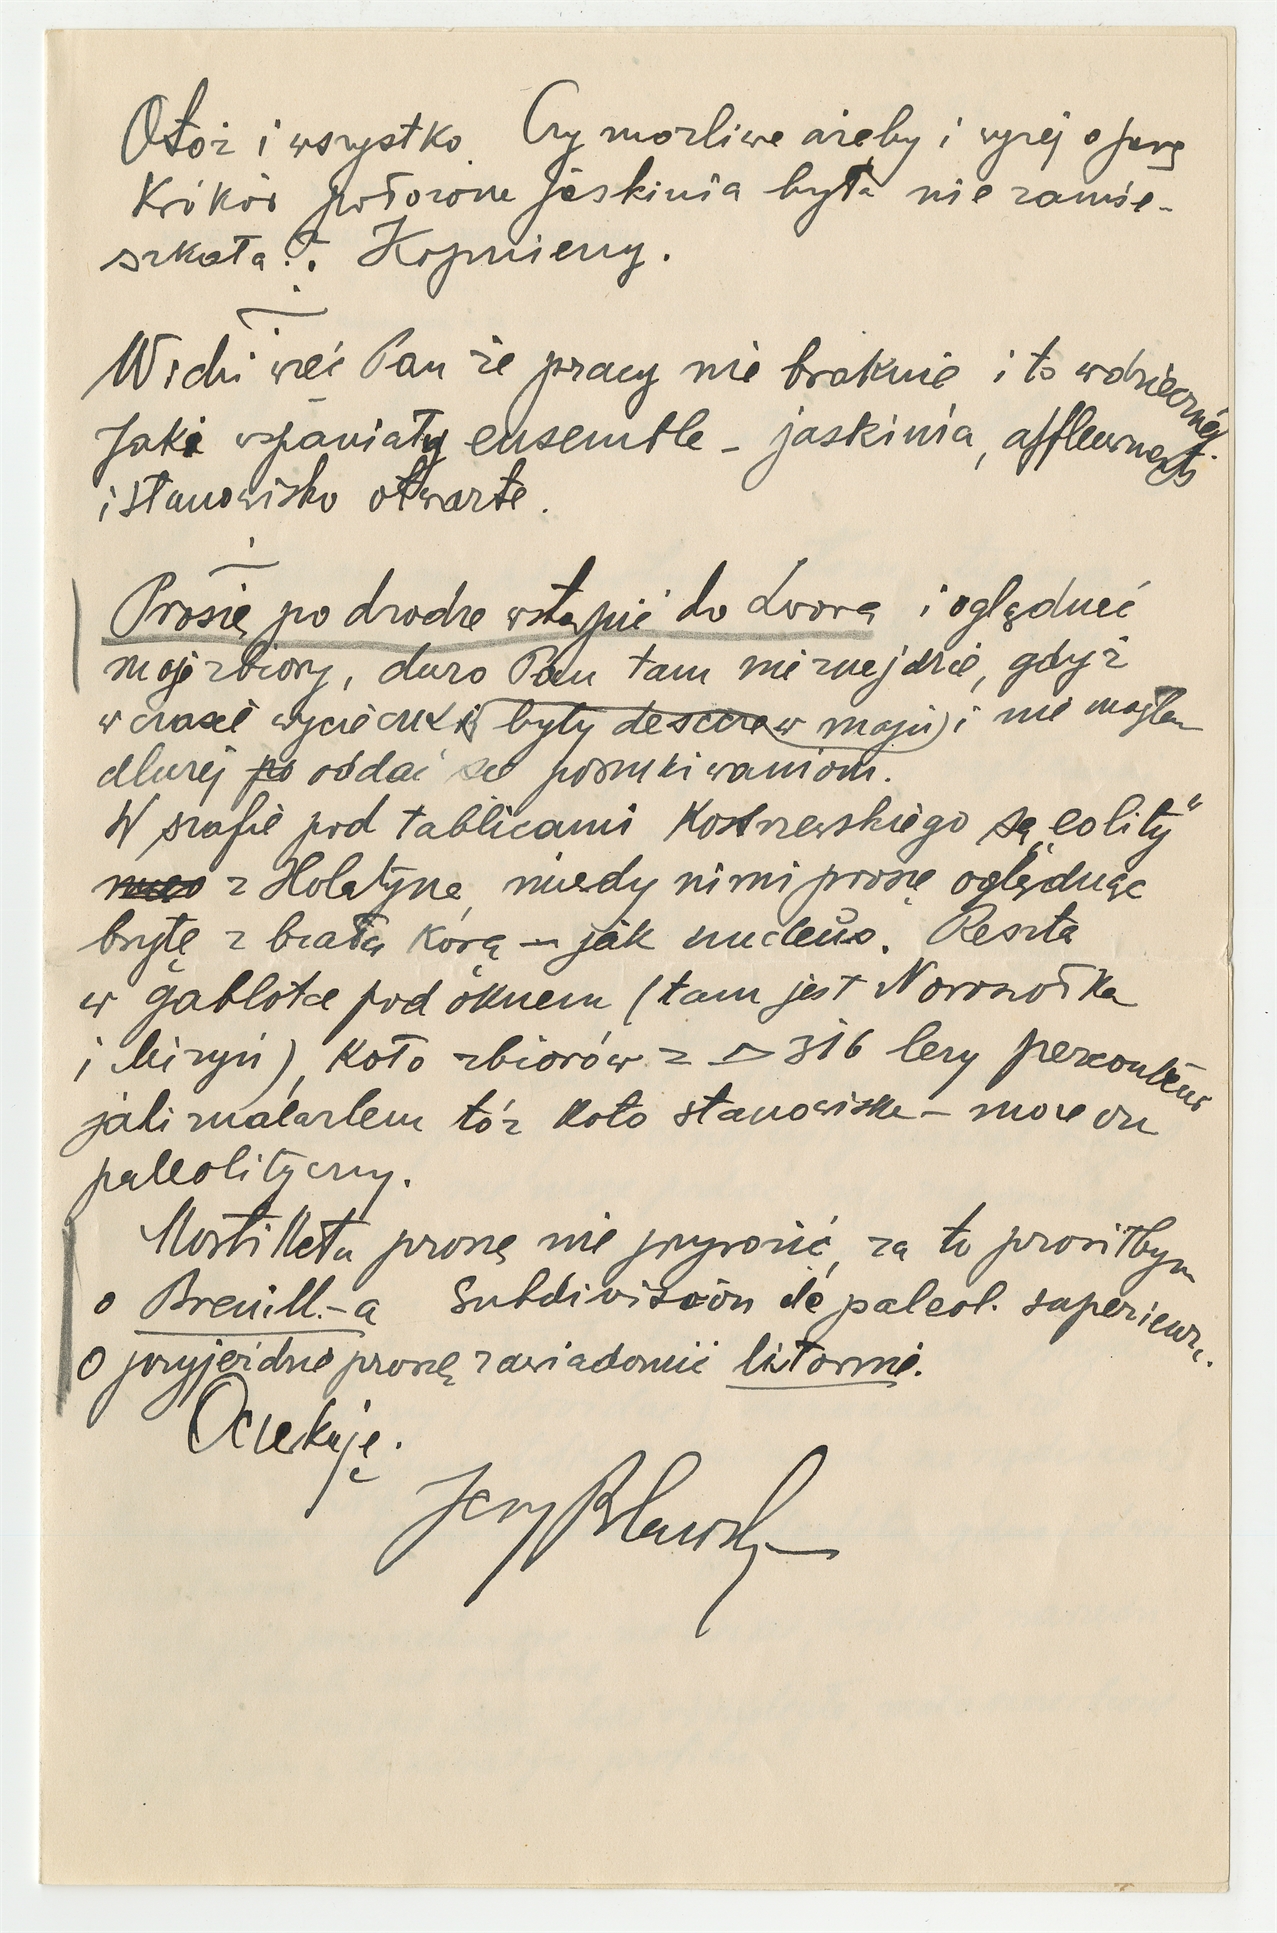 Otóż i wszystko. Czy możliwe ażeby i wyżej o parę
Kroków położona jaskinia była nie zamie-
szkała?. Kopniemy.
Widzi więc Pan że pracy nie braknie i to wdzięcznej.
Jaki wspaniały ensemble – jaskinia, affleurments
i stanowisko otwarte.
Proszę po drodze wstąpić do Lwowa i oglądnąć
moje zbiory, dużo Pan tam nie znajdzie, gdyż
w czasie wycieczki (były deszcze w maju) i nie mogłem
dłużej po oddać się poszukiwaniom.
W szafie pod tablicami Kostrzewskiego są „eolity“
z Holatyna, między nimi proszę oglądnąć
bryłę z białą Korą – jak nucleus. Reszta
w gablotce pod oknem (tam jest Worwołka
i ), Koło zbiorów z △ 316 leży percouteur
jaki znalazłem tóż Koło stanowiska – może on
paleolityczny.
Mortilleta proszę nie przywozić, za to prosiłbym
o Breuill.-a Subdivision de paleol. superieur.
O przyjeździe proszę zawiadomić listownie.
Oczekuję.
Jerzy